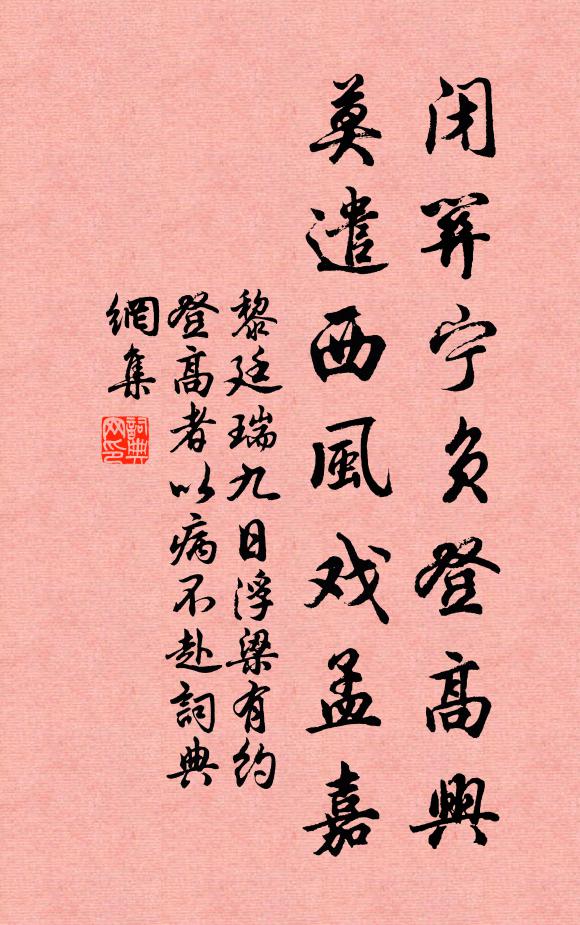 闭关宁负登高興
莫遣西風戏孟嘉
黎廷瑞九日浮梁有約
登高者以病不赴詞典
網集
詞典
网印